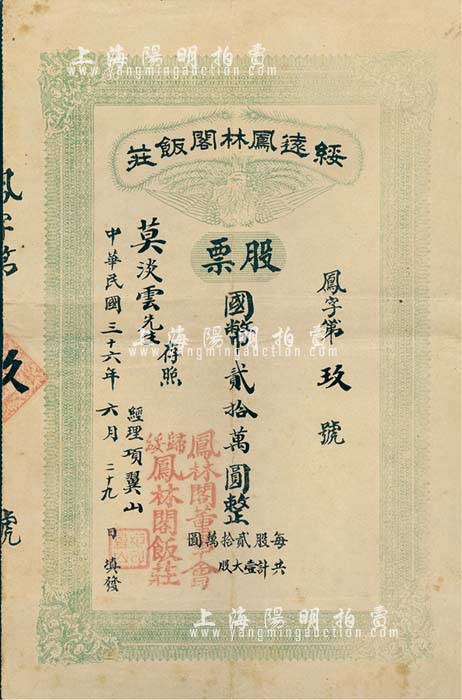 上海陽明拍賣
www.yangmingauction.com
綏遠鳳林閣飯莊
股票
鳳字第玖號
國幣貳拾萬圓整
每股貳拾萬圓
共計壹大股
莫淡雲先生存照
中華民國三十六年六月二十九日填發
經理項翼山
鳳林閣董事會
歸綏鳳林閣飯莊
鳳字第玖號
上海陽明拍賣
www.yangmingauction.com
上海陽明拍賣
www.yangmingauction.com